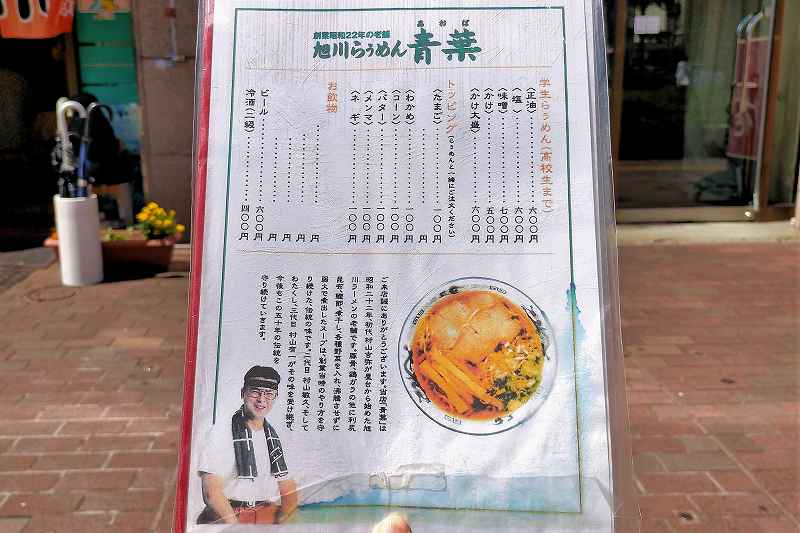 創業昭和22年の老舗
あおば
旭川らぅめん 青葉
学生らぅめん(高校生まで)
(正油)……六〇〇円
(塩)……六〇〇円
(味噌)……七〇〇円
(かけ)……五〇〇円
(かけ大盛)……六〇〇円
トッピング(らぅめんと一緒にご注文ください)
(たまご)……一〇〇円
……円
(わかめ)……一〇〇円
(コーン)……一〇〇円
(バター)……一〇〇円
(メンマ)……一〇〇円
(ネギ)……一〇〇円
お飲物
……円
……円
……円
……円
ビール……六〇〇円
冷酒(二級)……四〇〇円
ご来店誠にありがとうございます。当店「青葉」は
昭和二十二年、初代村山吉弥が屋台から始めた旭
川ラーメンの老舗です。豚骨、鶏ガラの他に利尻
昆布、鰹節、煮干し、各種野菜を入れ、沸騰させずに
弱火で煮出したスープは、創業当時のやり方を守
り続けた、伝統の味です。二代目 村山敏久、そして
わたくし、三代目 村山有一がその味を受け継ぎ、
今後もこの五十年の伝統を
守り続けていきます。